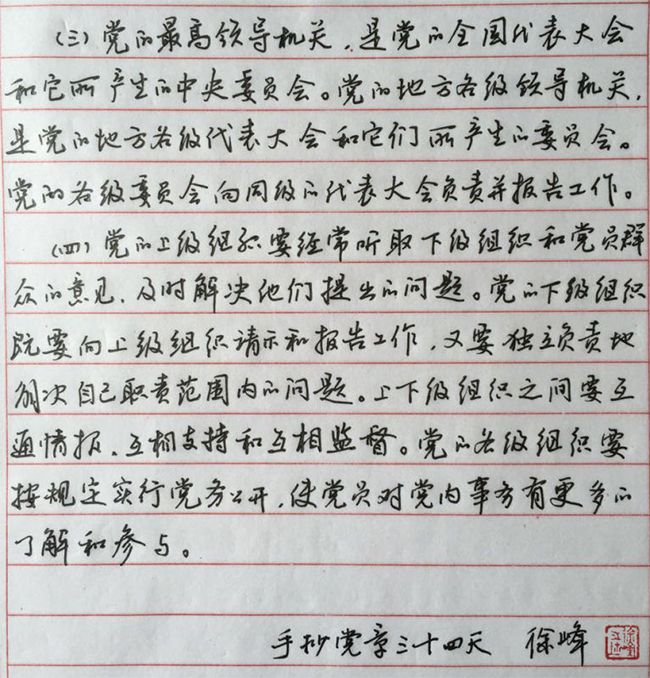 (三)党的最高领导机关,是党的全国代表大会
和它所产生的中央委员会。党的地方各级领导机关,
是党的地方各级代表大会和它们所产生的委员会。
党的各级委员会向同级的代表大会负责并报告工作。
(四)党的上级组织要经常听取下级组织和党员群
众的意见,及时解决他们提出的问题。党的下级组织
既要向上级组织请示和报告工作,又要独立负责地
解决自己职责范围内的问题。上下级组织之间要互
通情报、互相支持和互相监督。党的各级组织要
按规定实行党务公开,使党员对党内事务有更多的
了解和参与。
手抄党章三十四天 徐峰